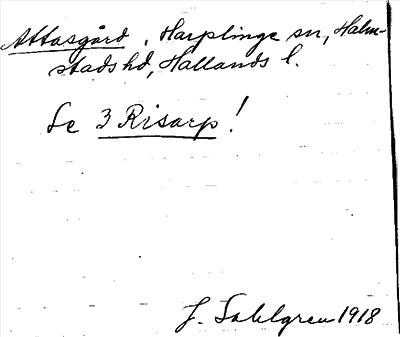 Attasgård, Harplinge sn, Halm-
stads hd, Hallands l.
Se 3 Risarp!
J. Sahlgren 1918